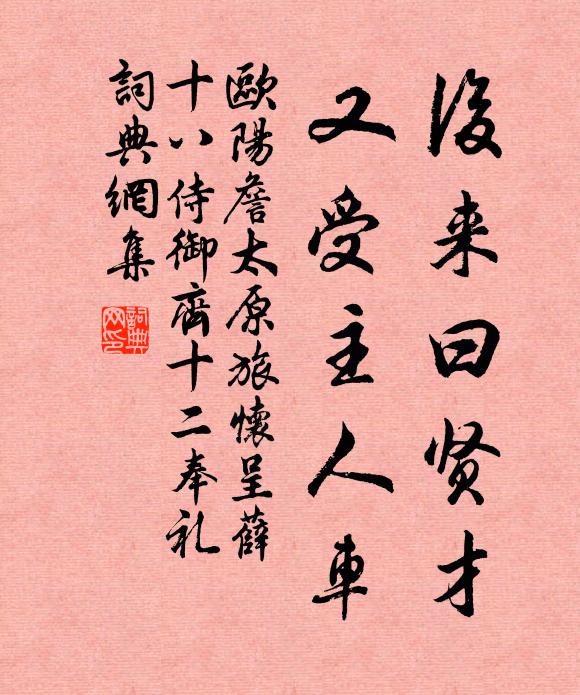 後来曰贤才
又受主人車
歐陽詹太原旅懷呈薛
十八侍御齊十二奉礼
詞典網集
詞典
网印